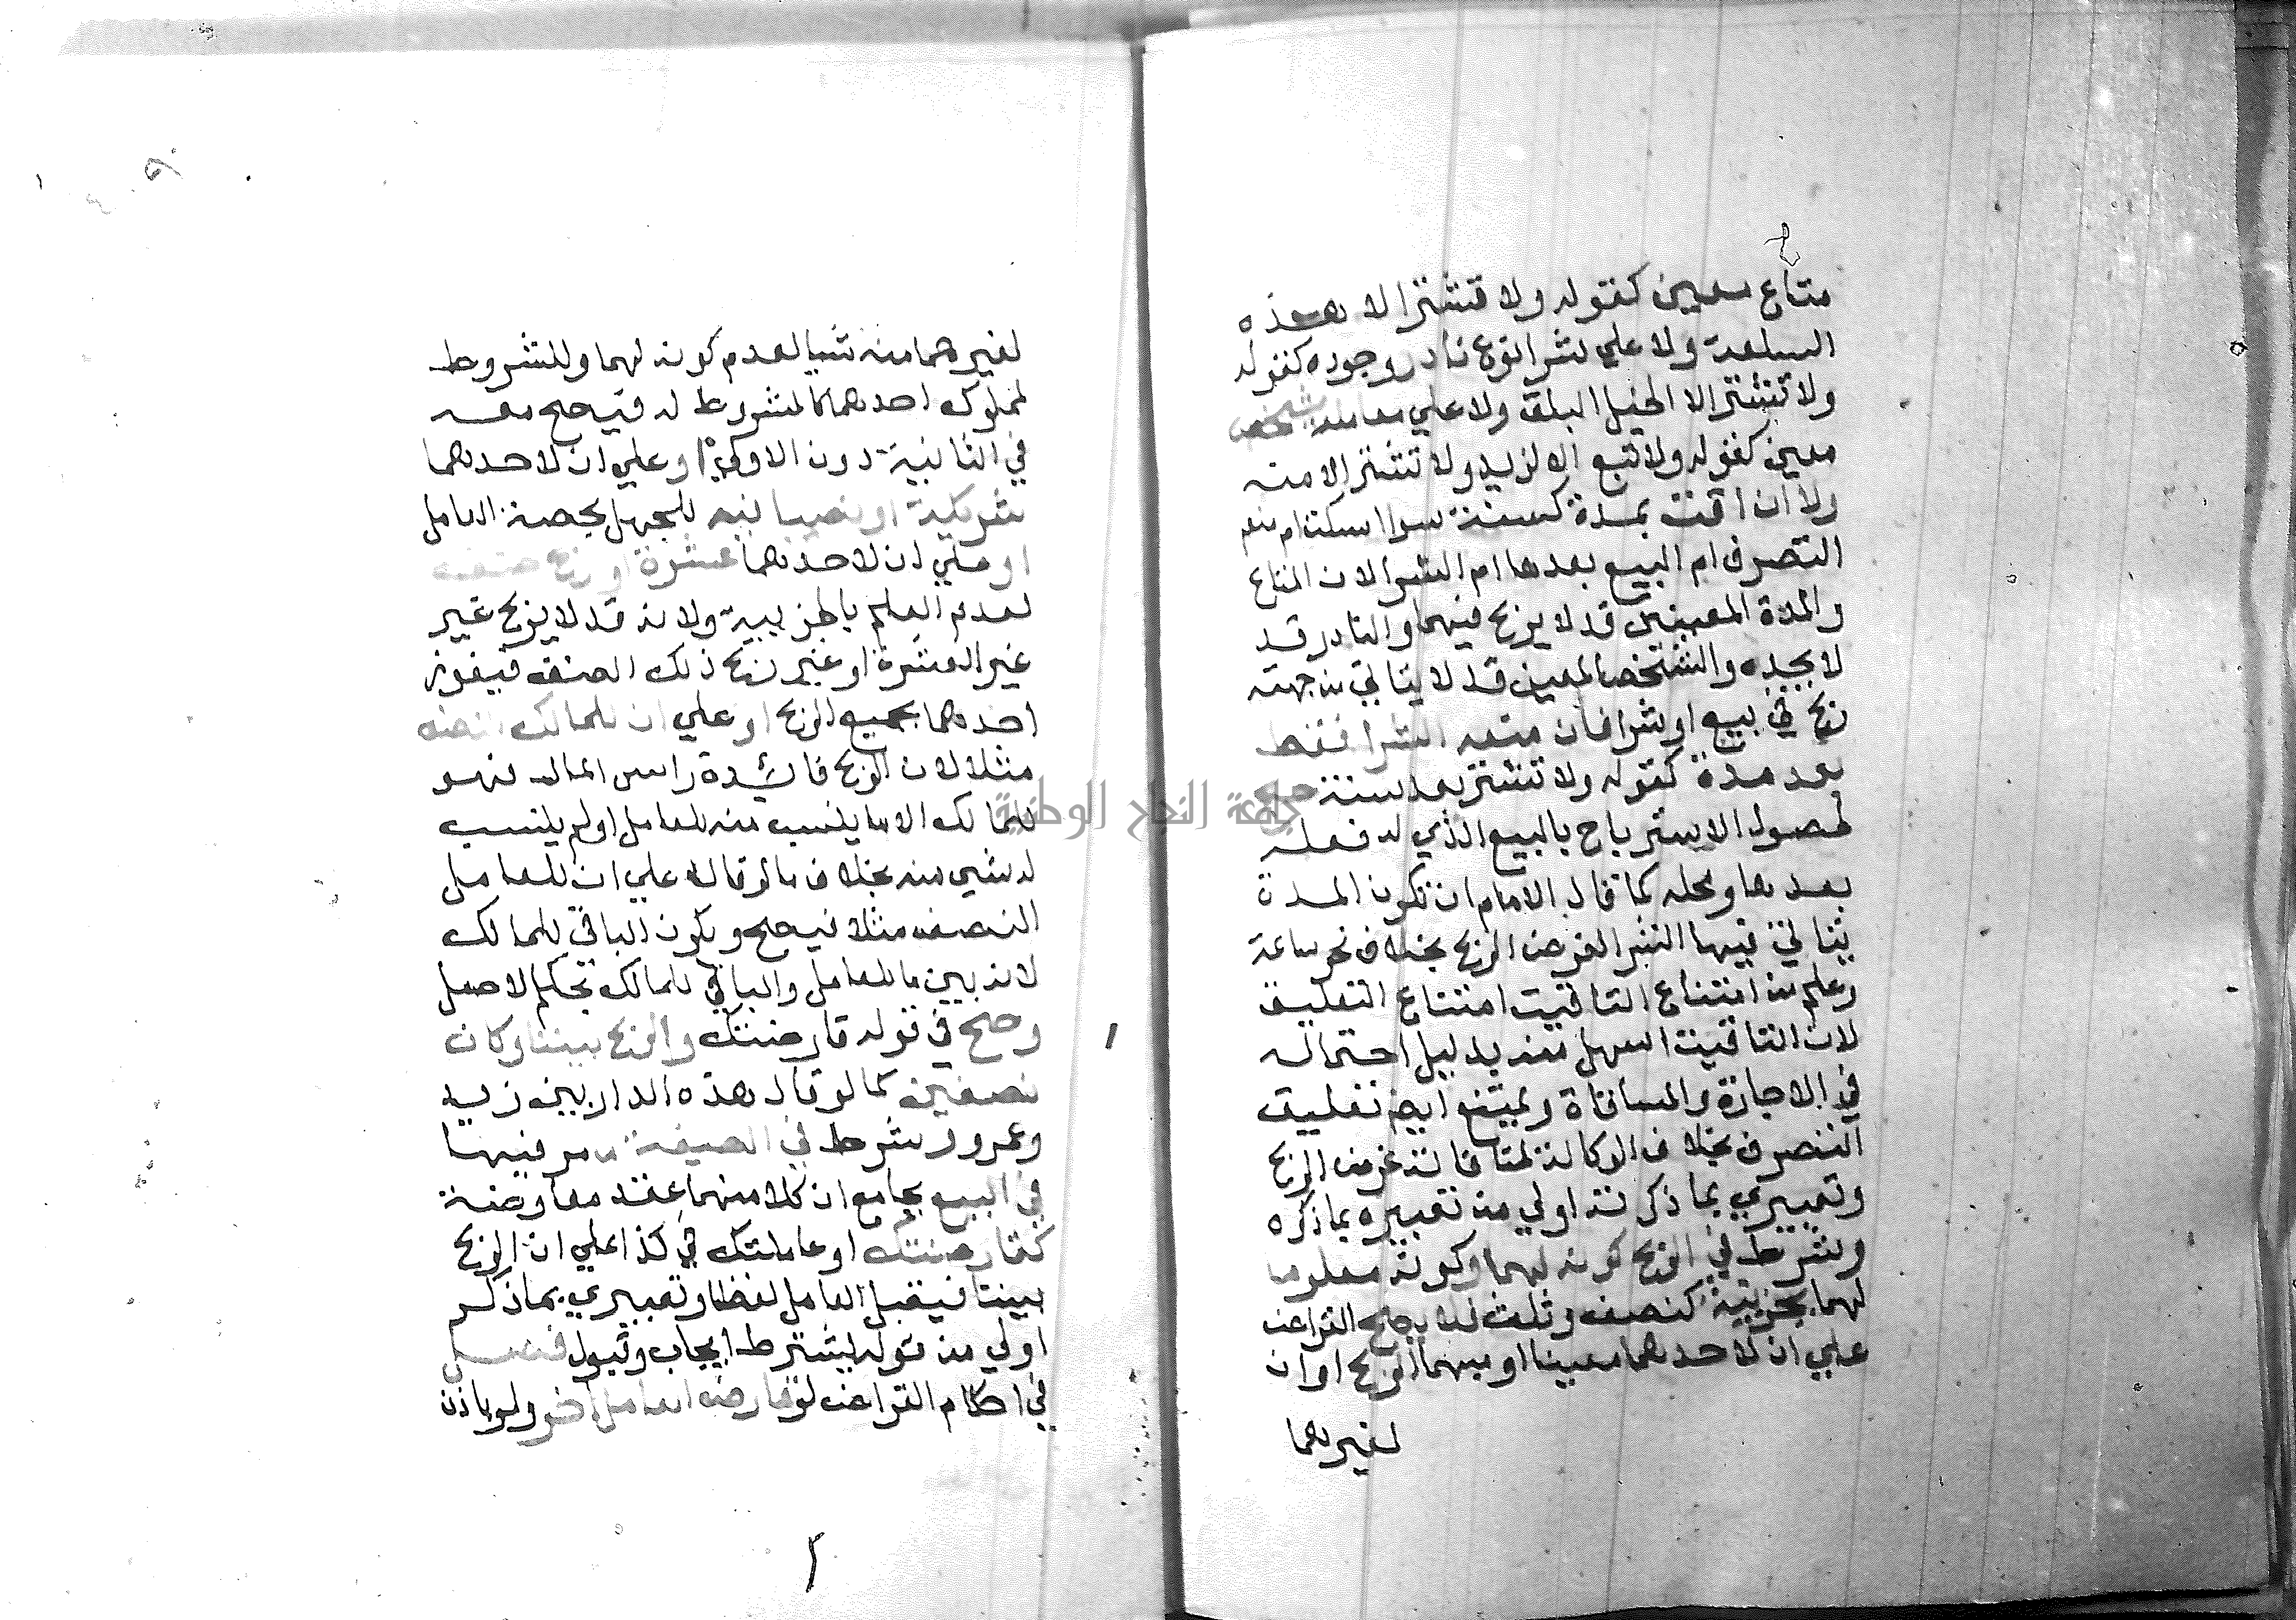 متاع معين كقوله ولا تشتر الا هذه
السلعة ولا علي شرا نوع نادر وجوده كقوله
ولا تشتر الا الخيل البلق ولا علي معاملة شخص
معين كقوله ولا تبع الا لزيد ولا تشتر الا منه
ولا ان اقت بمدة كسنة سوا اسكت ام منعه
التصرف ام البيع بعدها ام الشرا لان المتاع
والمدة المعينين قد لا يربح فيهما والنادر قد
لا يجده والشخص المعين قد لا يتاتي من جهته
ربح في بيع او شرا فان منعه الشرا فقط
بعد مدة كقوله ولا تشتر بعد سنة صح
لحصول الاسترباح بالبيع الذي له فعله
بعدها ومحله كما قال الامام ان تكون المدة
يتاتي فيها الشرا لغرض الربح بخلاف نحو ساعة
وعلم من امتناع التاقيت امتناع التعليق
لان التاقيت اسهل منه بدليل احتماله
في الاجارة والمساقاة ويمتنع ايضا تعليق
التصرف بخلاف الوكالة لمنافاته غرض الربح
وتعبيري بما ذكرته اولي من تعبيره بما ذكره
وشرط في الربح كونه لهما وكونه معلوما
لهما بجزيية كنصف وثلث فلا يصح القراض
علي ان لاحدهما معينا او مبهما الربح او ان
لغيرهما
لغيرهما منه شيا لعدم كونه لهما والمشروط
لمملوك احدهما كالمشروط له فيصح معه
في الثانية دون الاولي او علي ان لاحدهما
شركة او نصيبا فيه للجهل بحصة العامل
او علي ان لاحدهما عشرة او ربح صنف
لعدم العلم بالجزيية ولانه قد لا يربح غير
غير العشرة او غير ربح ذلك الصنف فيفوز
احدهما بجميع الربح او علي ان للمالك النصف
مثلا لان الربح فائدة راس المال فهو
للمالك الا ما ينسب منه للعامل ولم ينسب
له شي منه بخلاف ما لو قال علي ان للعامل
النصف مثلا فيصح ويكون الباقي للمالك
لانه بين ما للعامل والباقي للمالك بحكم الاصل
وصح في قوله قارضتك والربح بيننا وكان
نصفين كما لو قال هذه الدار بين زيد
وعمرو وشرط في الصيغة ما مر فيها
في البيع بجامع ان كلا منهما عقد معاوضة
كقارضتك او عاملتك في كذا علي ان الربح
بيننا فيقبل العامل لفظا وتعبيري بما ذكر
اولي من قوله يشترط ايجاب وقبول فصل
في احكام القراض لو قارض العامل اخر ولو باذن
جامعة النجاح الوطنية